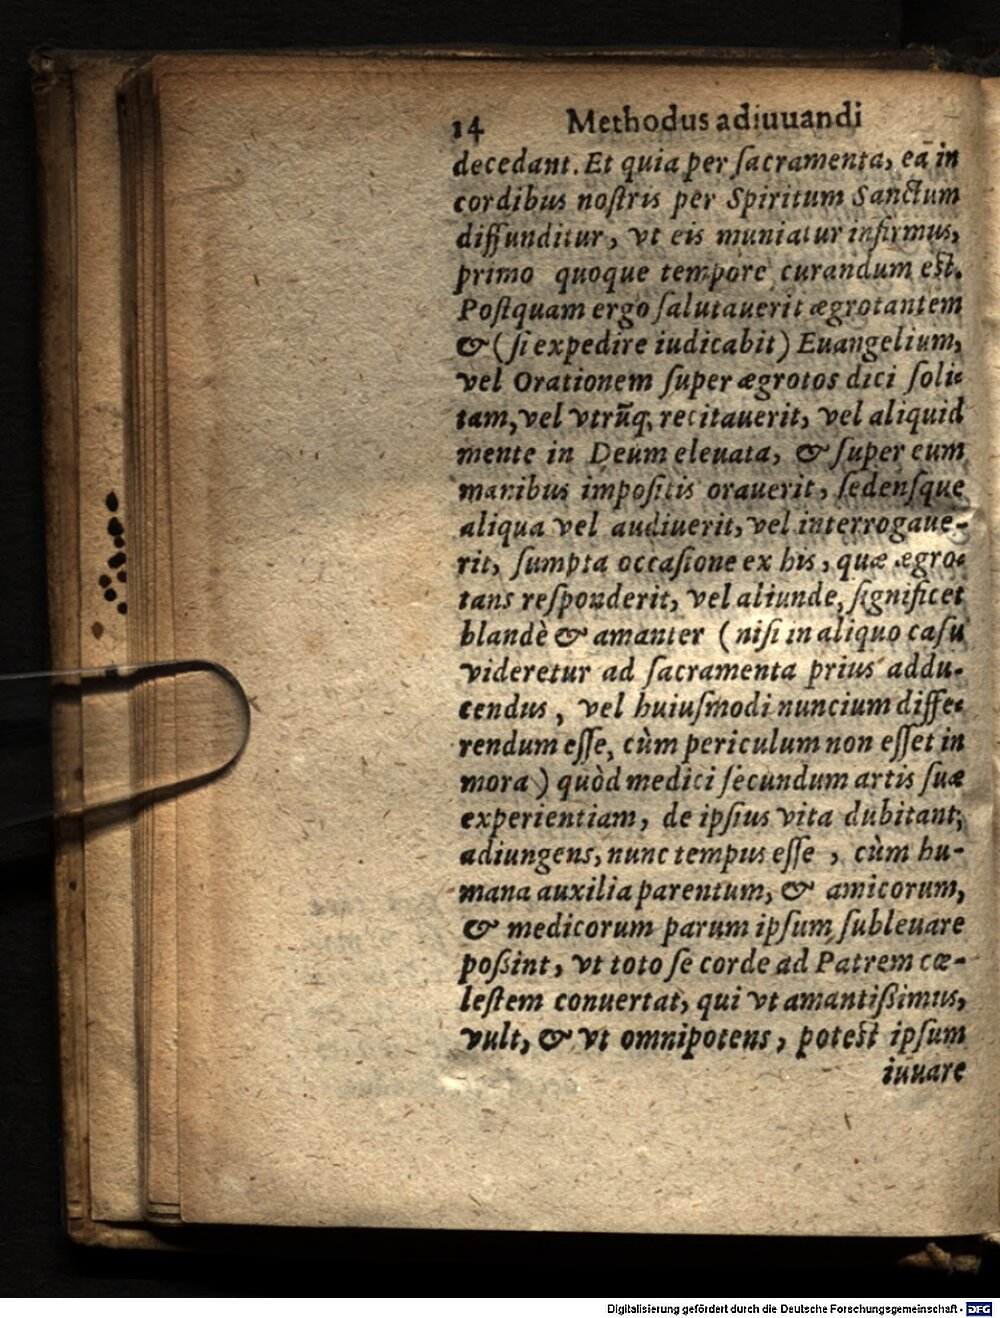 14 Methodus adiuuandi
decedant. Et quia per ſacramenta, eā in
cordibus noſtris per Spiritum Sanctum
diffunditur, vt eis muniatur infirmus,
primo quoque tempore curandum eſt.
Poſtquam ergo ſalutauerit ægrotantem
& (ſi expedire iudicabit) Euangelium,
vel Orationem ſuper ægrotos dici ſoli-
tam, vel vtrūq; recitauerit, vel aliquid
mente in Deum eleuata, & ſuper eum
manibus impoſitis orauerit, ſedenſque
aliqua vel audiuerit, vel interrogaue-
rit, ſumpta occaſione ex his, quæ ægro-
tans reſponderit, vel aliunde, ſignificet
blandè & amanter (niſi in aliquo caſu
videretur ad ſacramenta prius addu-
cendus, vel huiuſmodi nuncium diffe-
rendum eſſe, cùm periculum non eſſet in
mora) quòd medici ſecundum artis ſuæ
experientiam, de ipſius vita dubitant;
adiungens, nunc tempus eſſe, cùm hu-
mana auxilia parentum, & amicorum,
& medicorum parum ipſum ſubleuare
poßint, vt toto ſe corde ad Patrem cæ-
leſtem conuertat, qui vt amantißimus,
vult, & vt omnipotens, poteſt ipſum
iuuare
Digitalisierung gefördert durch die Deutsche Forschungsgemeinschaft - DFG